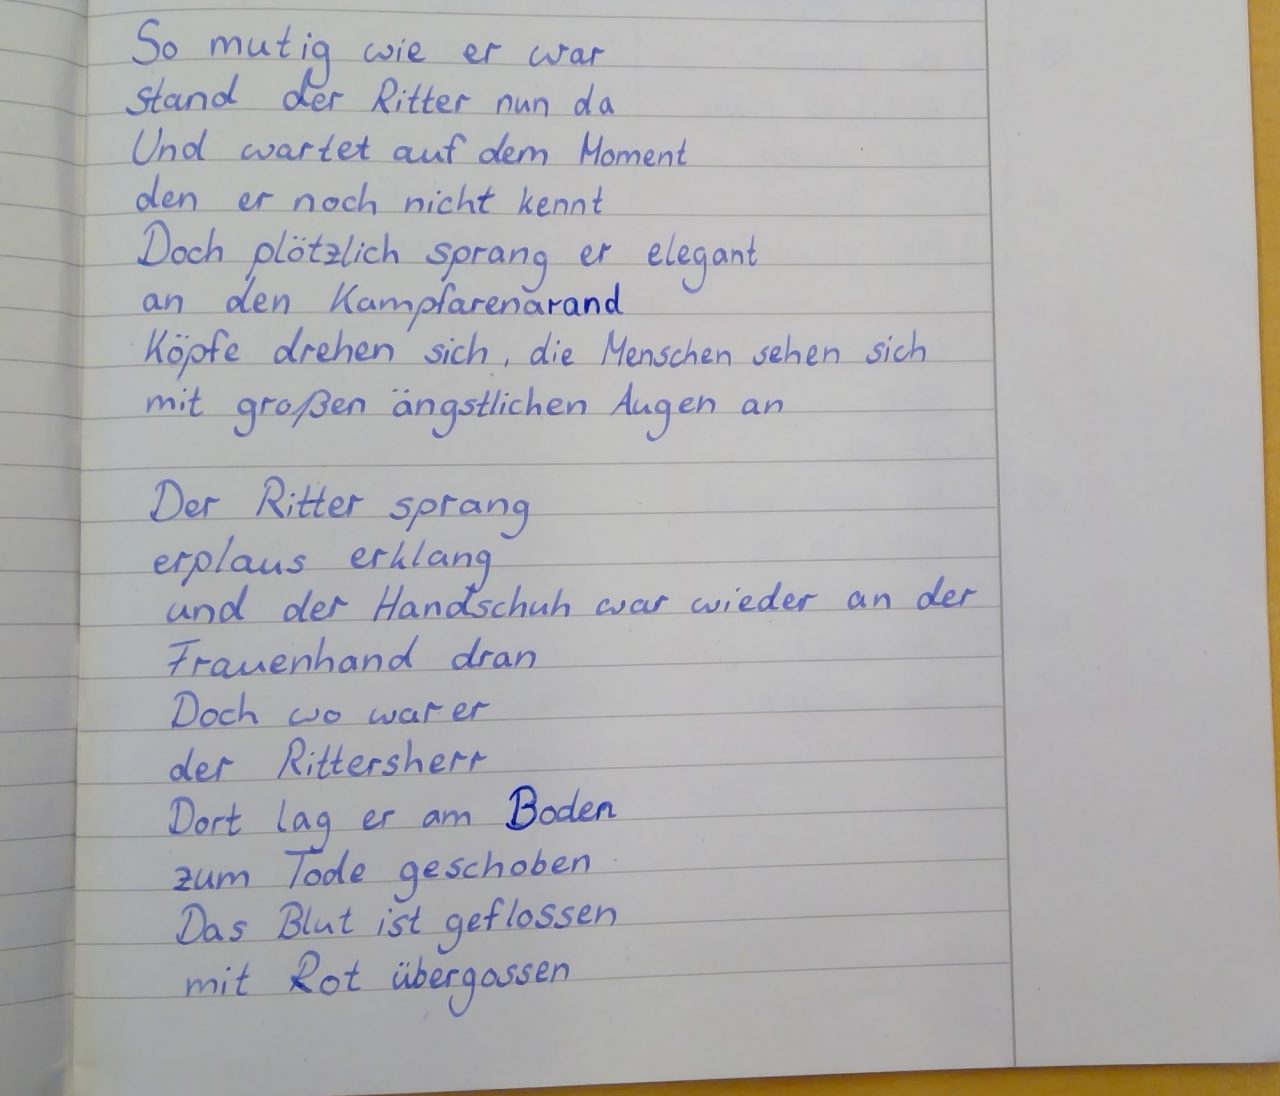 So mutig wie er war
stand der Ritter nun da
Und wartet auf dem Moment
den er noch nicht kennt
Doch plötzlich sprang er elegant
an den Kampfarenarand
Köpfe drehen sich, die Menschen sehen sich
mit großen ängstlichen Augen an
Der Ritter sprang
erplaus erklang
und der Handschuh war wieder an der
Frauenhand dran
Doch wo war er
der Rittersherr
Dort lag er am Boden
zum Tode geschoben
Das Blut ist geflossen
mit Rot übergossen